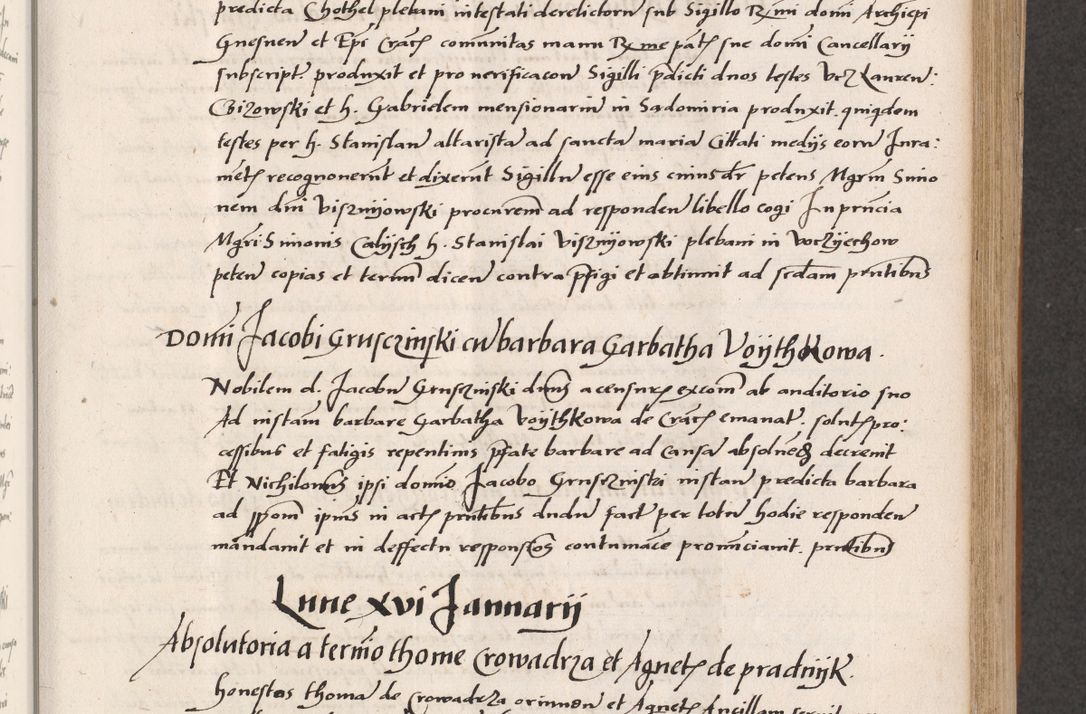 predicta Chothel plebani intestati derelictorũ sub Sigillo Rm̃i domi Archiepi
Gnesneñ et Ep̃i Crac̃ comm̃nitas manu Rme pat͂ sue domi Cancellarij
subscript̃ produxit et pro verificacoñ Sigilli p̃dicti dnos testes Lauren:
et h. Gabrielem mensionariũ in Sadomiria produxit. quiqdem
testes per h. Stanislaũ altaristã ad sancta maria Cittati medijs eorũ Jura:
met͂ recognouerũt et dixerũt Sigillũ esse eius cuius dr̃ petens Mgrm̃ Simo
nem dni viszniiowski procurem̃ ad respondeñ libello cogi In pñcia
Mgri Simonis Calijsch h. Stanislai viszniiowski plebani in woczijechow
peteñ copias et termĩ diceñ contra p̃figi et abtinuit ad scdam pñtibus
Domĩ Jacobi Grusczinski cũ barbara Garbatha Voijthkowa.
Nobilem d. Jacobũ Grusczinski dnus a censur͂ excom̃ ab auditorio suo
Ad instam̃ barbare Garbatha voijthkowa de Crac͂ emanat̃. solut͂ pro:
cessibus et fatigis repentinis p̃fate barbare ad causã absolueñ decreuit
Et Nichilomis ipsi domo Jacobo Grusczinski instañ predicta barbara
ad ipius in act͂ pñtibus dudũ fact͂ per totũ hodie respondeñ
mandauit et in deffectu responsios contumacẽ pronũciauit. pñtibus
Lune xvi Januarij
Absolutoria a termĩo thome Crowadrza et Agnet͂ de pradnijk.
honestos thomã de Crowadrza oriundũ et Agnet͂ Ancillam